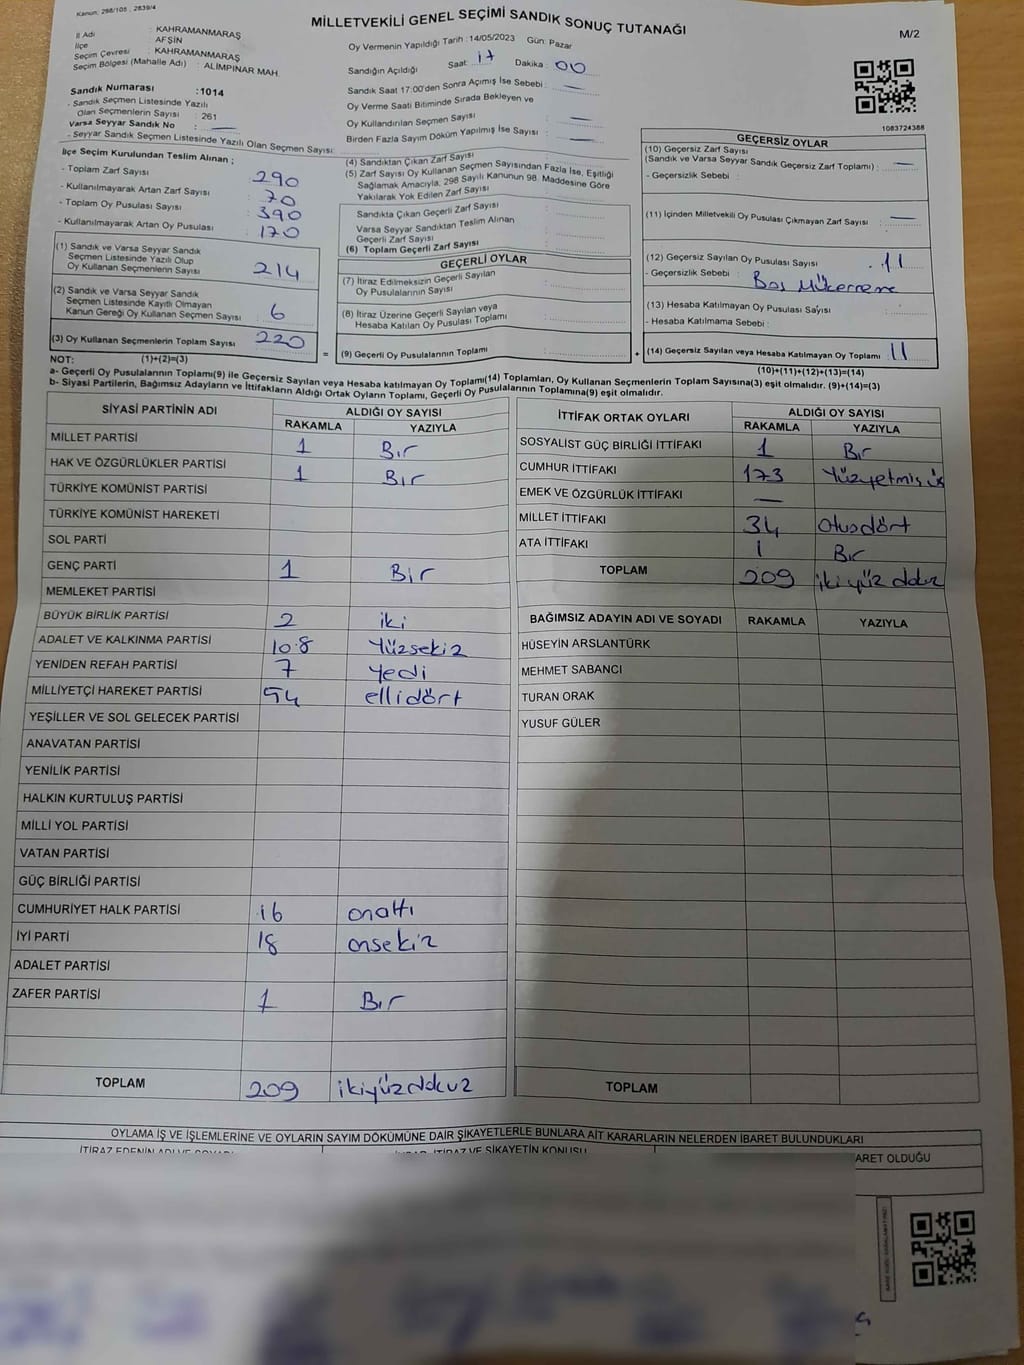 Kanun: 298/105 , 2839/4
MİLLETVEKİLİ GENEL SEÇİMİ SANDIK SONUÇ TUTANAĞI
M/2
İl Adı : KAHRAMANMARAŞ
İlçe : AFŞİN
Seçim Çevresi : KAHRAMANMARAŞ
Seçim Bölgesi (Mahalle Adı) : ALİMPINAR MAH.
Sandık Numarası :1014
- Sandık Seçmen Listesinde Yazılı
Olan Seçmenlerin Sayısı : 261
Varsa Seyyar Sandık No : —
- Seyyar Sandık Seçmen Listesinde Yazılı Olan Seçmen Sayısı:
Oy Vermenin Yapıldığı Tarih : 14/05/2023 Gün: Pazar
Sandığın Açıldığı Saat: 17 Dakika : 00
Sandık Saat 17:00'den Sonra Açımış İse Sebebi : —
Oy Verme Saati Bitiminde Sırada Bekleyen ve
Oy Kullandırılan Seçmen Sayısı : —
Birden Fazla Sayım Döküm Yapılmış İse Sayısı : —
1083724388
İlçe Seçim Kurulundan Teslim Alınan ;
- Toplam Zarf Sayısı : 290
- Kullanılmayarak Artan Zarf Sayısı : 70
- Toplam Oy Pusulası Sayısı : 390
- Kullanılmayarak Artan Oy Pusulası : 170
(1) Sandık ve Varsa Seyyar Sandık
Seçmen Listesinde Yazılı Olup
Oy Kullanan Seçmenlerin Sayısı : 214
(2) Sandık ve Varsa Seyyar Sandık
Seçmen Listesinde Kayıtlı Olmayan
Kanun Gereği Oy Kullanan Seçmen Sayısı : 6
(3) Oy Kullanan Seçmenlerin Toplam Sayısı : 220
(4) Sandıktan Çıkan Zarf Sayısı :
(5) Zarf Sayısı Oy Kullanan Seçmen Sayısından Fazla İse, Eşitliği
Sağlamak Amacıyla, 298 Sayılı Kanunun 98. Maddesine Göre
Yakılarak Yok Edilen Zarf Sayısı :
Sandıkta Çıkan Geçerli Zarf Sayısı :
Varsa Seyyar Sandıktan Teslim Alınan
Geçerli Zarf Sayısı :
(6) Toplam Geçerli Zarf Sayısı :
GEÇERLİ OYLAR
(7) İtiraz Edilmeksizin Geçerli Sayılan
Oy Pusulalarının Sayısı :
(8) İtiraz Üzerine Geçerli Sayılan veya
Hesaba Katılan Oy Pusulası Toplamı :
= (9) Geçerli Oy Pusulalarının Toplamı :
GEÇERSİZ OYLAR
(10) Geçersiz Zarf Sayısı
(Sandık ve Varsa Seyyar Sandık Geçersiz Zarf Toplamı) : —
- Geçersizlik Sebebi :
(11) İçinden Milletvekili Oy Pusulası Çıkmayan Zarf Sayısı : —
(12) Geçersiz Sayılan Oy Pusulası Sayısı : 11
- Geçersizlik Sebebi : Boş
(13) Hesaba Katılmayan Oy Pusulası Sayısı :
- Hesaba Katılmama Sebebi :
+ (14) Geçersiz Sayılan veya Hesaba Katılmayan Oy Toplamı : 11
NOT: (1)+(2)=(3)
(10)+(11)+(12)+(13)=(14)
a- Geçerli Oy Pusulalarının Toplamı(9) ile Geçersiz Sayılan veya Hesaba katılmayan Oy Toplamı(14) Toplamları, Oy Kullanan Seçmenlerin Toplam Sayısına(3) eşit olmalıdır. (9)+(14)=(3)
b- Siyasi Partilerin, Bağımsız Adayların ve İttifakların Aldığı Ortak Oyların Toplamı, Geçerli Oy Pusulalarının Toplamına(9) eşit olmalıdır.
SİYASİ PARTİNİN ADI ALDIĞI OY SAYISI
RAKAMLA YAZIYLA
MİLLET PARTİSİ 1 Bır
HAK VE ÖZGÜRLÜKLER PARTİSİ 1 Bır
TÜRKİYE KOMÜNİST PARTİSİ
TÜRKİYE KOMÜNİST HAREKETİ
SOL PARTİ
GENÇ PARTİ 1 Bir
MEMLEKET PARTİSİ
BÜYÜK BİRLİK PARTİSİ 2 iki
ADALET VE KALKINMA PARTİSİ 108 Yüzsekiz
YENİDEN REFAH PARTİSİ 7 Yedi
MİLLİYETÇİ HAREKET PARTİSİ 54 ellidört
YEŞİLLER VE SOL GELECEK PARTİSİ
ANAVATAN PARTİSİ
YENİLİK PARTİSİ
HALKIN KURTULUŞ PARTİSİ
MİLLİ YOL PARTİSİ
VATAN PARTİSİ
GÜÇ BİRLİĞİ PARTİSİ
CUMHURİYET HALK PARTİSİ 16 onaltı
İYİ PARTİ 18 onsekiz
ADALET PARTİSİ
ZAFER PARTİSİ 1 Bır
TOPLAM 209 ikiyüzdokuz
İTTİFAK ORTAK OYLARI ALDIĞI OY SAYISI
RAKAMLA YAZIYLA
SOSYALİST GÜÇ BİRLİĞİ İTTİFAKI 1 Bır
CUMHUR İTTİFAKI 173 Yüzyetmişüç
EMEK VE ÖZGÜRLÜK İTTİFAKI —
MİLLET İTTİFAKI 34 otuzdört
ATA İTTİFAKI 1 Bır
TOPLAM 209 ikiyüzdokuz
BAĞIMSIZ ADAYIN ADI VE SOYADI RAKAMLA YAZIYLA
HÜSEYİN ARSLANTÜRK
MEHMET SABANCI
TURAN ORAK
YUSUF GÜLER
TOPLAM
OYLAMA İŞ VE İŞLEMLERİNE VE OYLARIN SAYIM DÖKÜMÜNE DAİR ŞİKAYETLERLE BUNLARA AİT KARARLARIN NELERDEN İBARET BULUNDUKLARI
İTİRAZ EDENİN ADI VE SOYADI İTİRAZ VE ŞİKAYETİN KONUSU ARET OLDUĞU